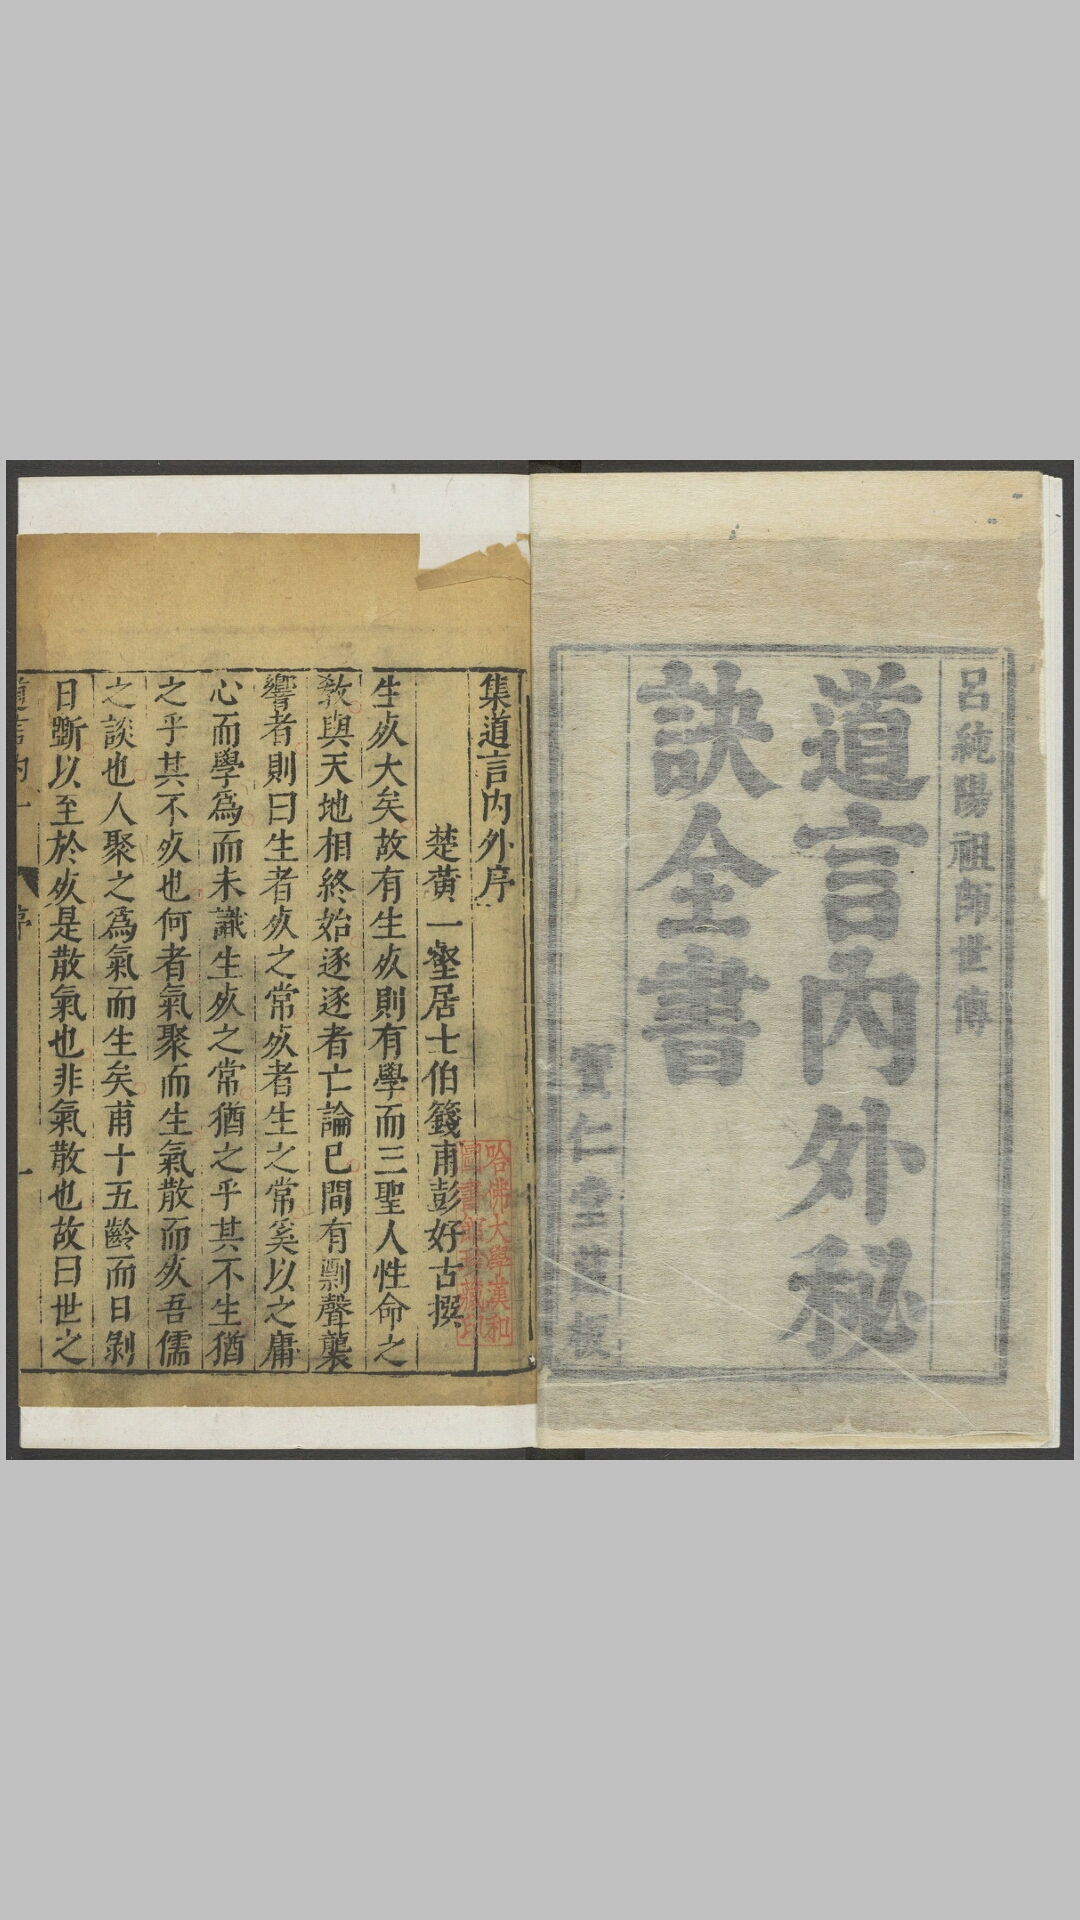 呂純陽祖師世傳
道言內外秘
訣全書
寶仁堂藏板
集道言内外序
楚黄一壑居士伯籛甫彭好古撰
生死大矣故有生死則有學而三聖人性命之
教與天地相終始逐逐者亡論已間有剽聲襲
響者則曰生者死之常死者生之常奚以之庸
心而學爲而未識生死之常猶之乎其不生猶
之乎其不死也何者氣聚而生氣散而死吾儒
之談也人聚之爲氣而生矣甫十五齡而日剝
日斵以至於死是散氣也非氣散也故曰世之
道言内
序
一
哈佛大學漢和
圖書館珍藏印